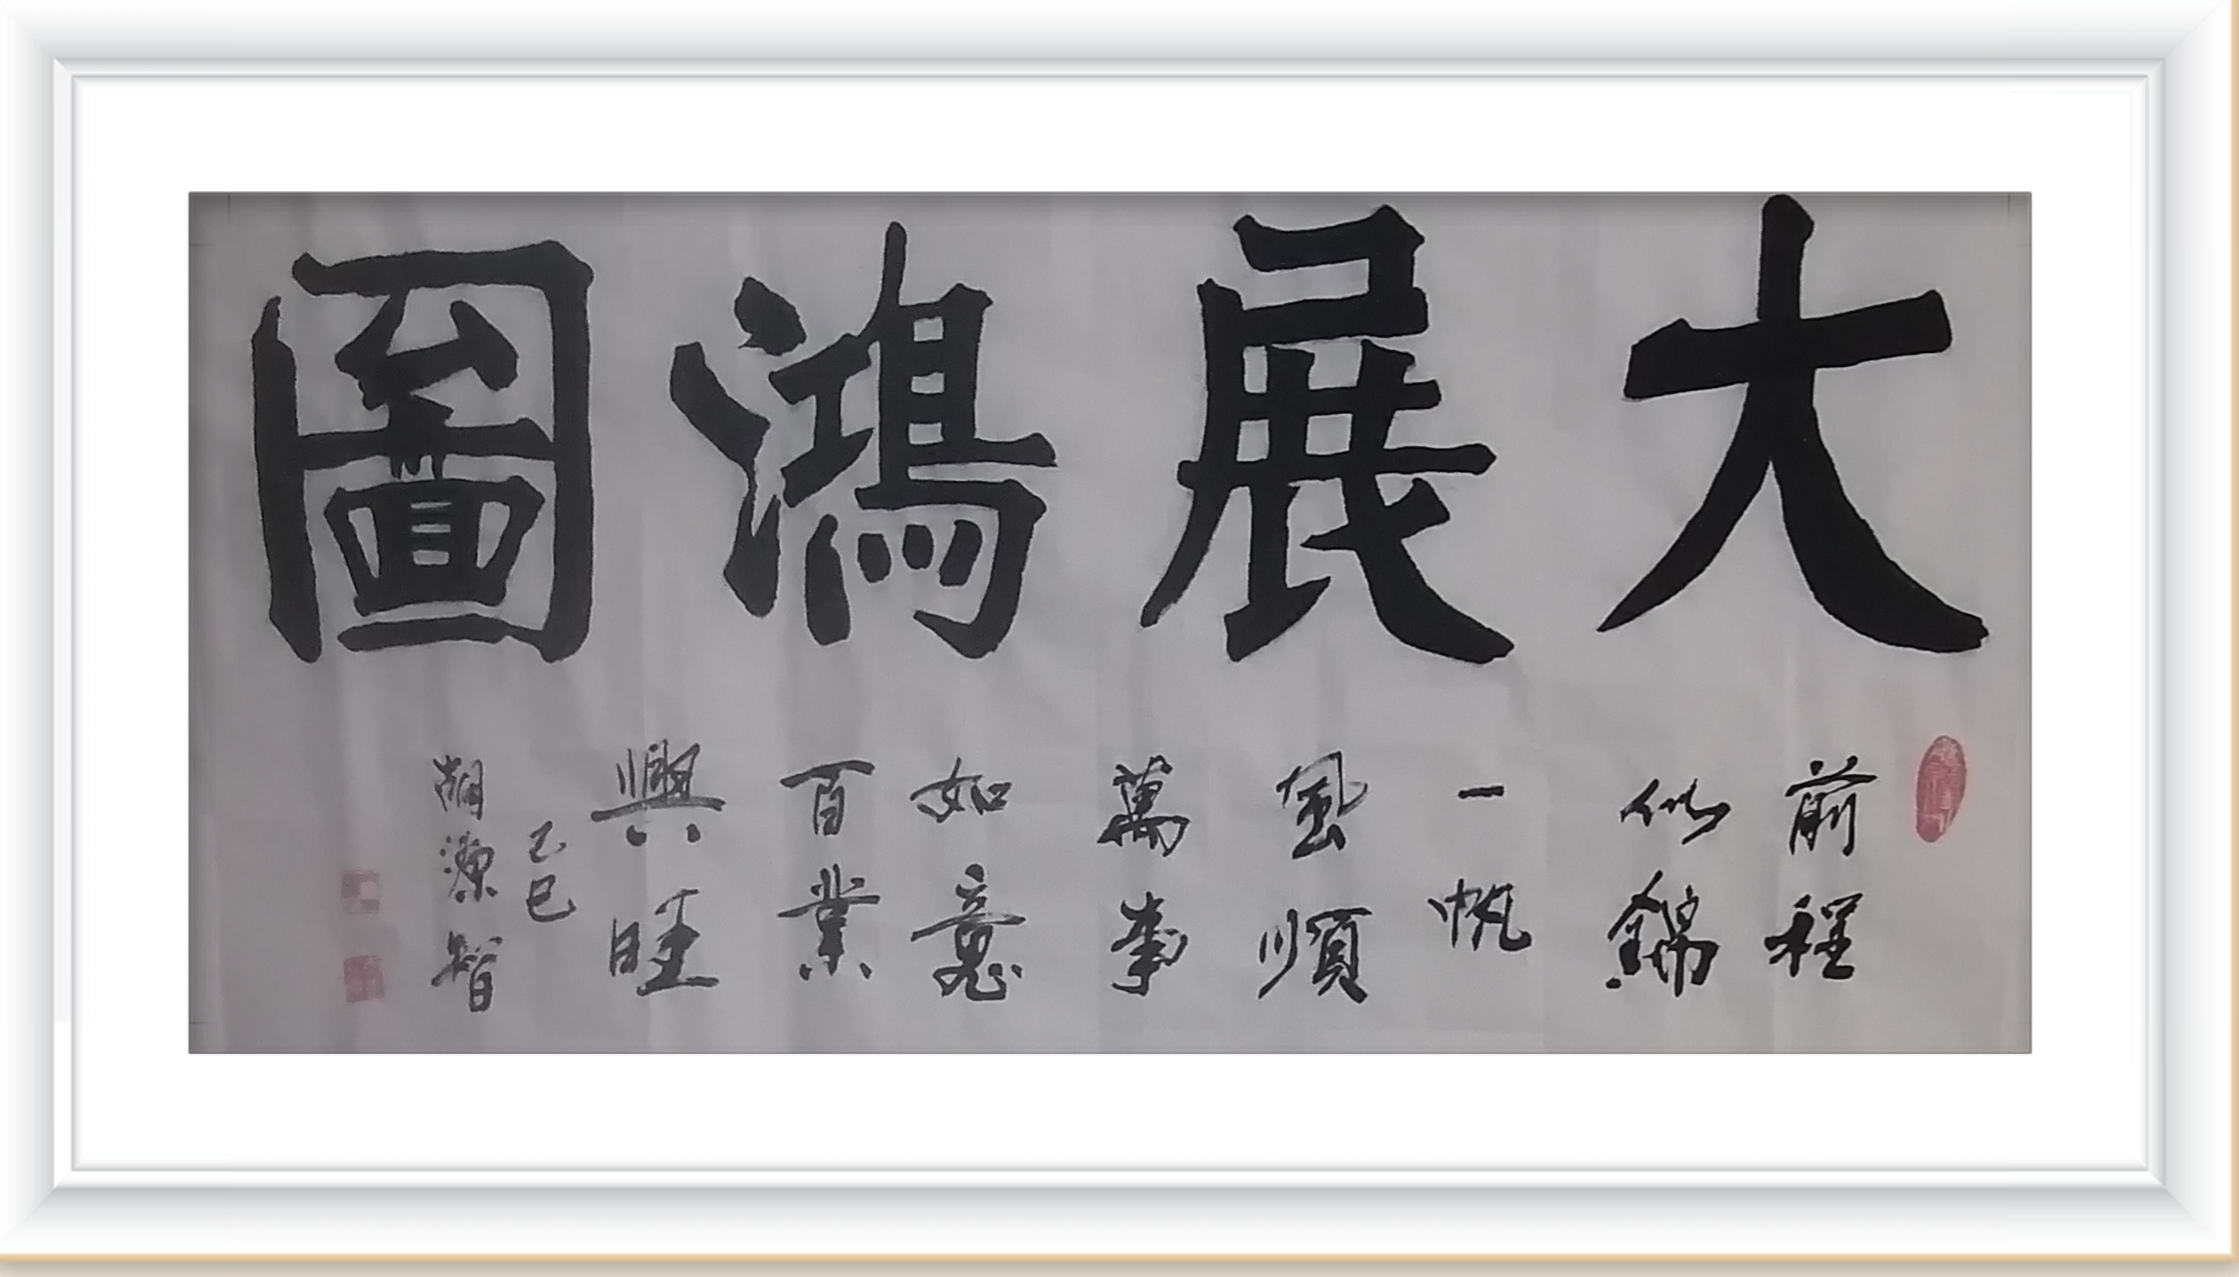 大展鴻圖
前程
似錦
一帆
風順
萬事
如意
百業
興旺
乙巳
胡源智